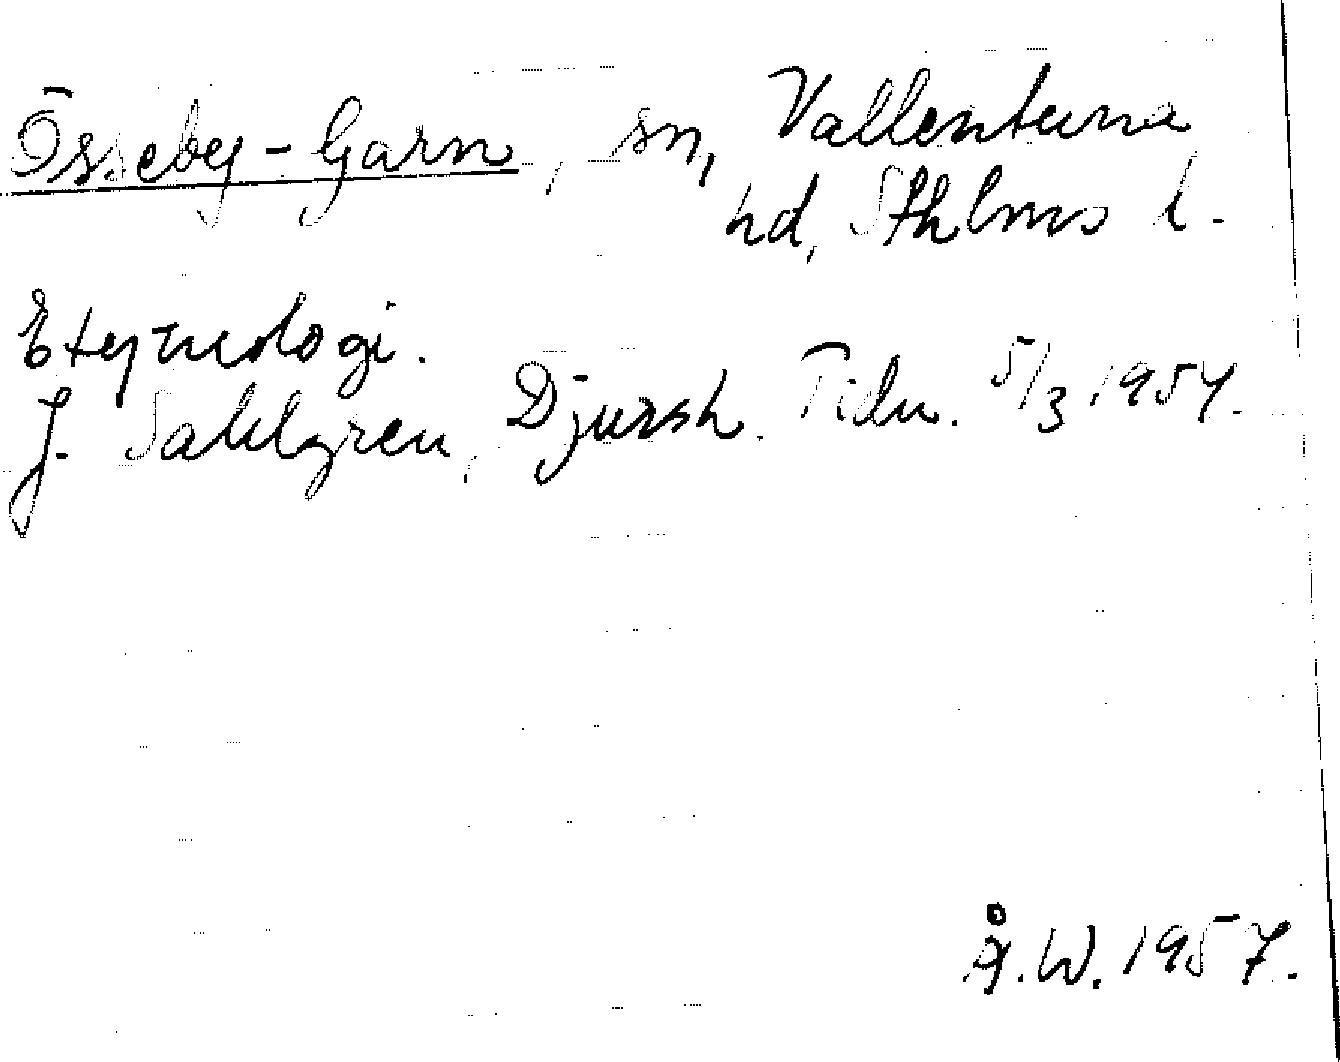 Össeby-Garn, sn, Vallentuna
hd, Sthlms l.
Etymologi.
J. Sahlgren, Djursh. Tidn. 5/3 1954.
Å.W. 1957.